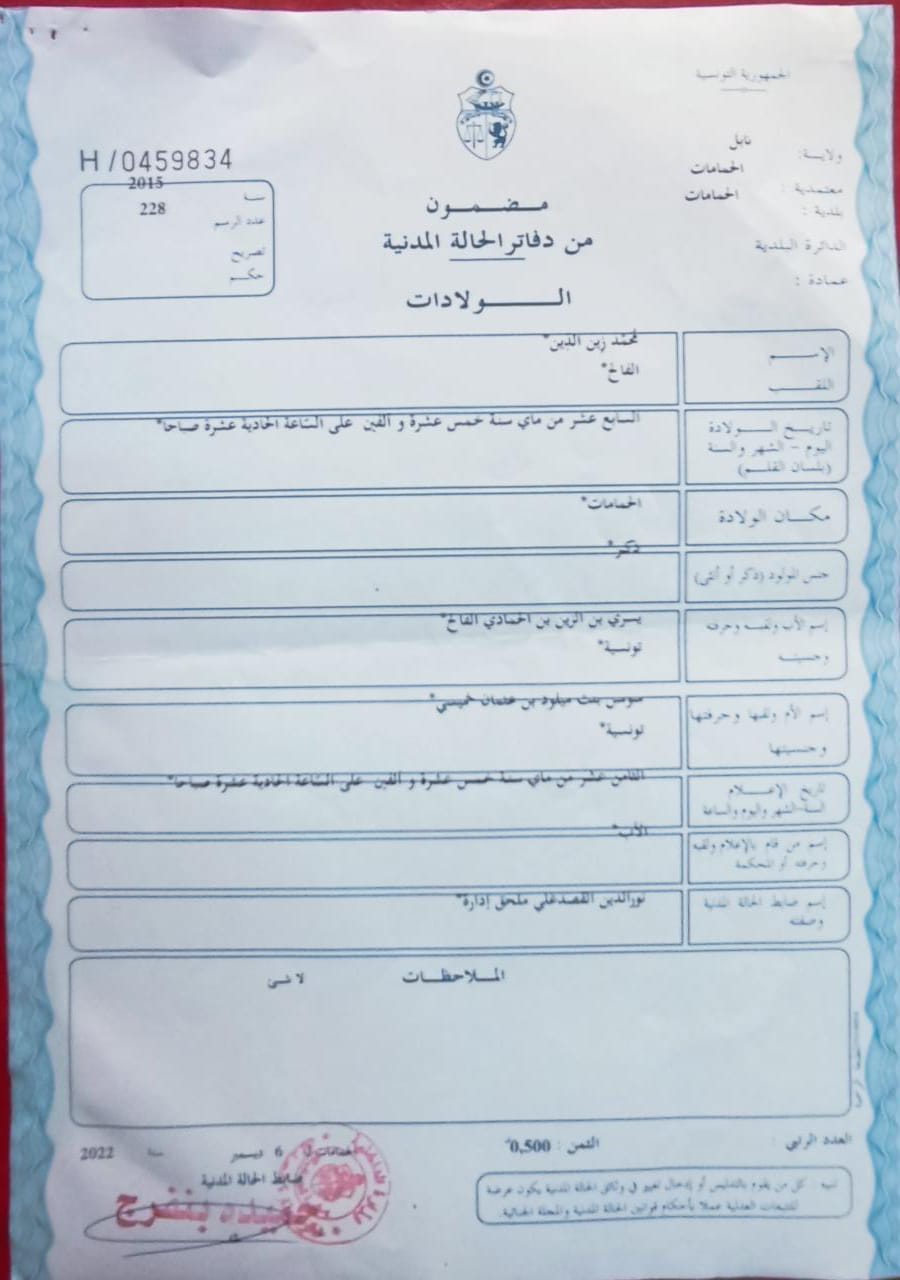 الجمهورية التونسية
ولاية: نابل
معتمدية : الحمامات
بلدية : الحمامات
الدائرة البلدية
عمادة :
H/0459834
سنة 2015
عدد الرسم 228
تصريح
حكم
مضمون
من دفاتر الحالة المدنية
الولادات
الإسم محمّد زين الدين*
اللقب الفالح*
تاريخ الولادة السابع عشر من ماي سنة خمس عشرة و ألفين على السّاعة الحادية عشرة صباحا*
اليوم - الشهر والسنة
(بلسان القلم)
مكان الولادة الحمامات*
جنس المولود (ذكر أو أنثى) ذكر*
إسم الأب ولقبه وحرفته يسري بن الزين بن الحمادي الفالح*
وجنسيته تونسية*
إسم الأم ولقبها وحرفتها سوسن بنت ميلود بن عثمان خميسي*
وجنسيتها تونسية*
تاريخ الإعلام الثامن عشر من ماي سنة خمس عشرة و ألفين على السّاعة الحادية عشرة صباحا*
السنة-الشهر واليوم والساعة
إسم من قام بالإعلام ولقبه الأب*
وحرفته أو المحكمة
إسم ضابط الحالة المدنية نورالدين القصدغلي ملحق إدارة*
وصفته
الملاحظات لا شئ
العدد الرتبي :
الثمن : 0,500*
الحمامات في 6 ديسمبر سنة 2022
ضابط الحالة المدنية
تنبيه : كل من يقوم بالتدليس أو إدخال تغيير في وثائق الحالة المدنية يكون عرضة
للتتبعات العدلية عملا بأحكام قوانين الحالة المدنية والمجلة الجنائية.